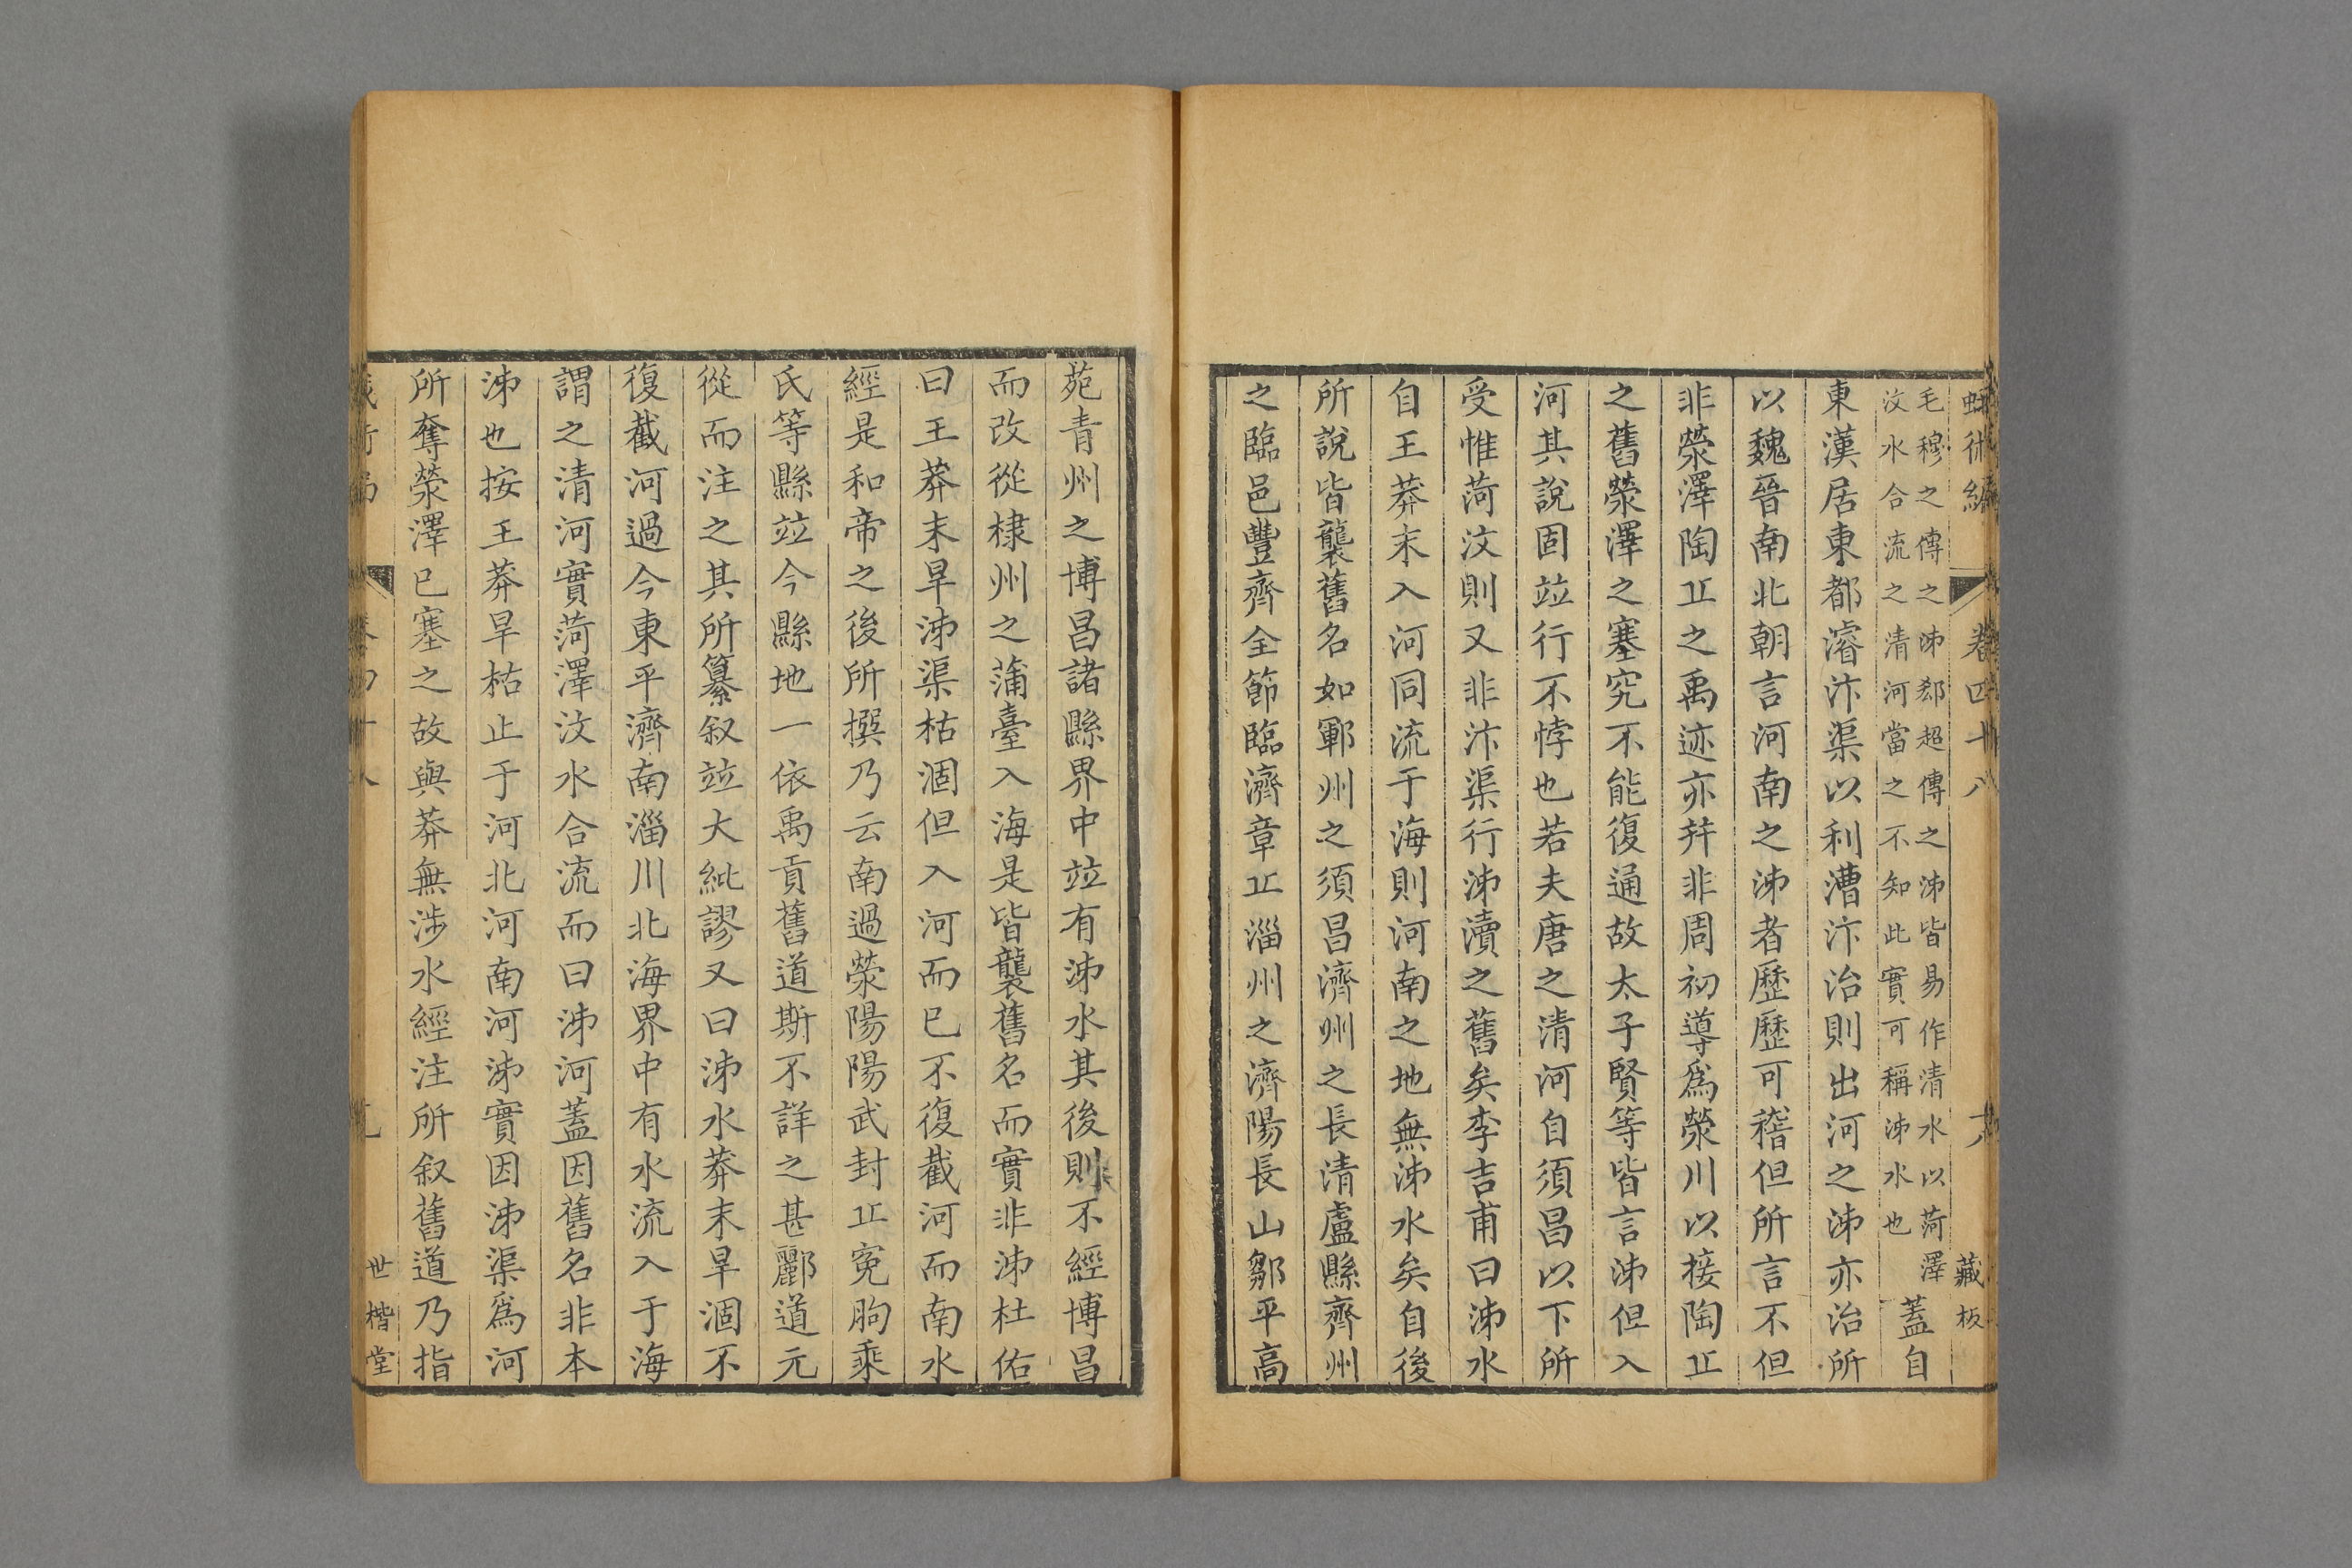 蛾術編 卷四十八 六 藏板
毛穆之傳之泲郄超傳之泲皆易作清水以菏澤
汶水合流之清河當之不知此實可稱泲水也
蓋自
東漢居東都濬汴渠以利漕汴治則出河之泲亦治所
以魏晉南北朝言河南之泲者歷歷可稽但所言不但
非滎澤陶丠之禹迹亦幷非周初導爲滎川以接陶丠
之舊滎澤之塞究不能復通故太子賢等皆言泲但入
河其說固竝行不悖也若夫唐之清河自須昌以下所
受惟菏汶則又非汴渠行泲瀆之舊矣李吉甫曰泲水
自王莽末入河同流于海則河南之地無泲水矣自後
所說皆襲舊名如鄆州之須昌濟州之長清盧縣齊州
之臨邑豐齊全節臨濟章丠淄州之濟陽長山鄒平高
苑青州之博昌諸縣界中竝有泲水其後則不經博昌
而改從棣州之蒲臺入海是皆襲舊名而實非泲杜佑
曰王莽末旱泲渠枯涸但入河而已不復截河而南水
經是和帝之後所撰乃云南過滎陽陽武封丠冤朐乘
氏等縣竝今縣地一依禹貢舊道斯不詳之甚酈道元
從而注之其所纂叙竝大紕謬又曰泲水莽末旱涸不
復截河過今東平濟南淄川北海界中有水流入于海
謂之清河實菏澤汶水合流而曰泲河蓋因舊名非本
泲也按王莽旱枯止于河北河南河泲實因泲渠爲河
所奪滎澤已塞之故與莽無涉水經注所叙舊道乃指
世楷堂